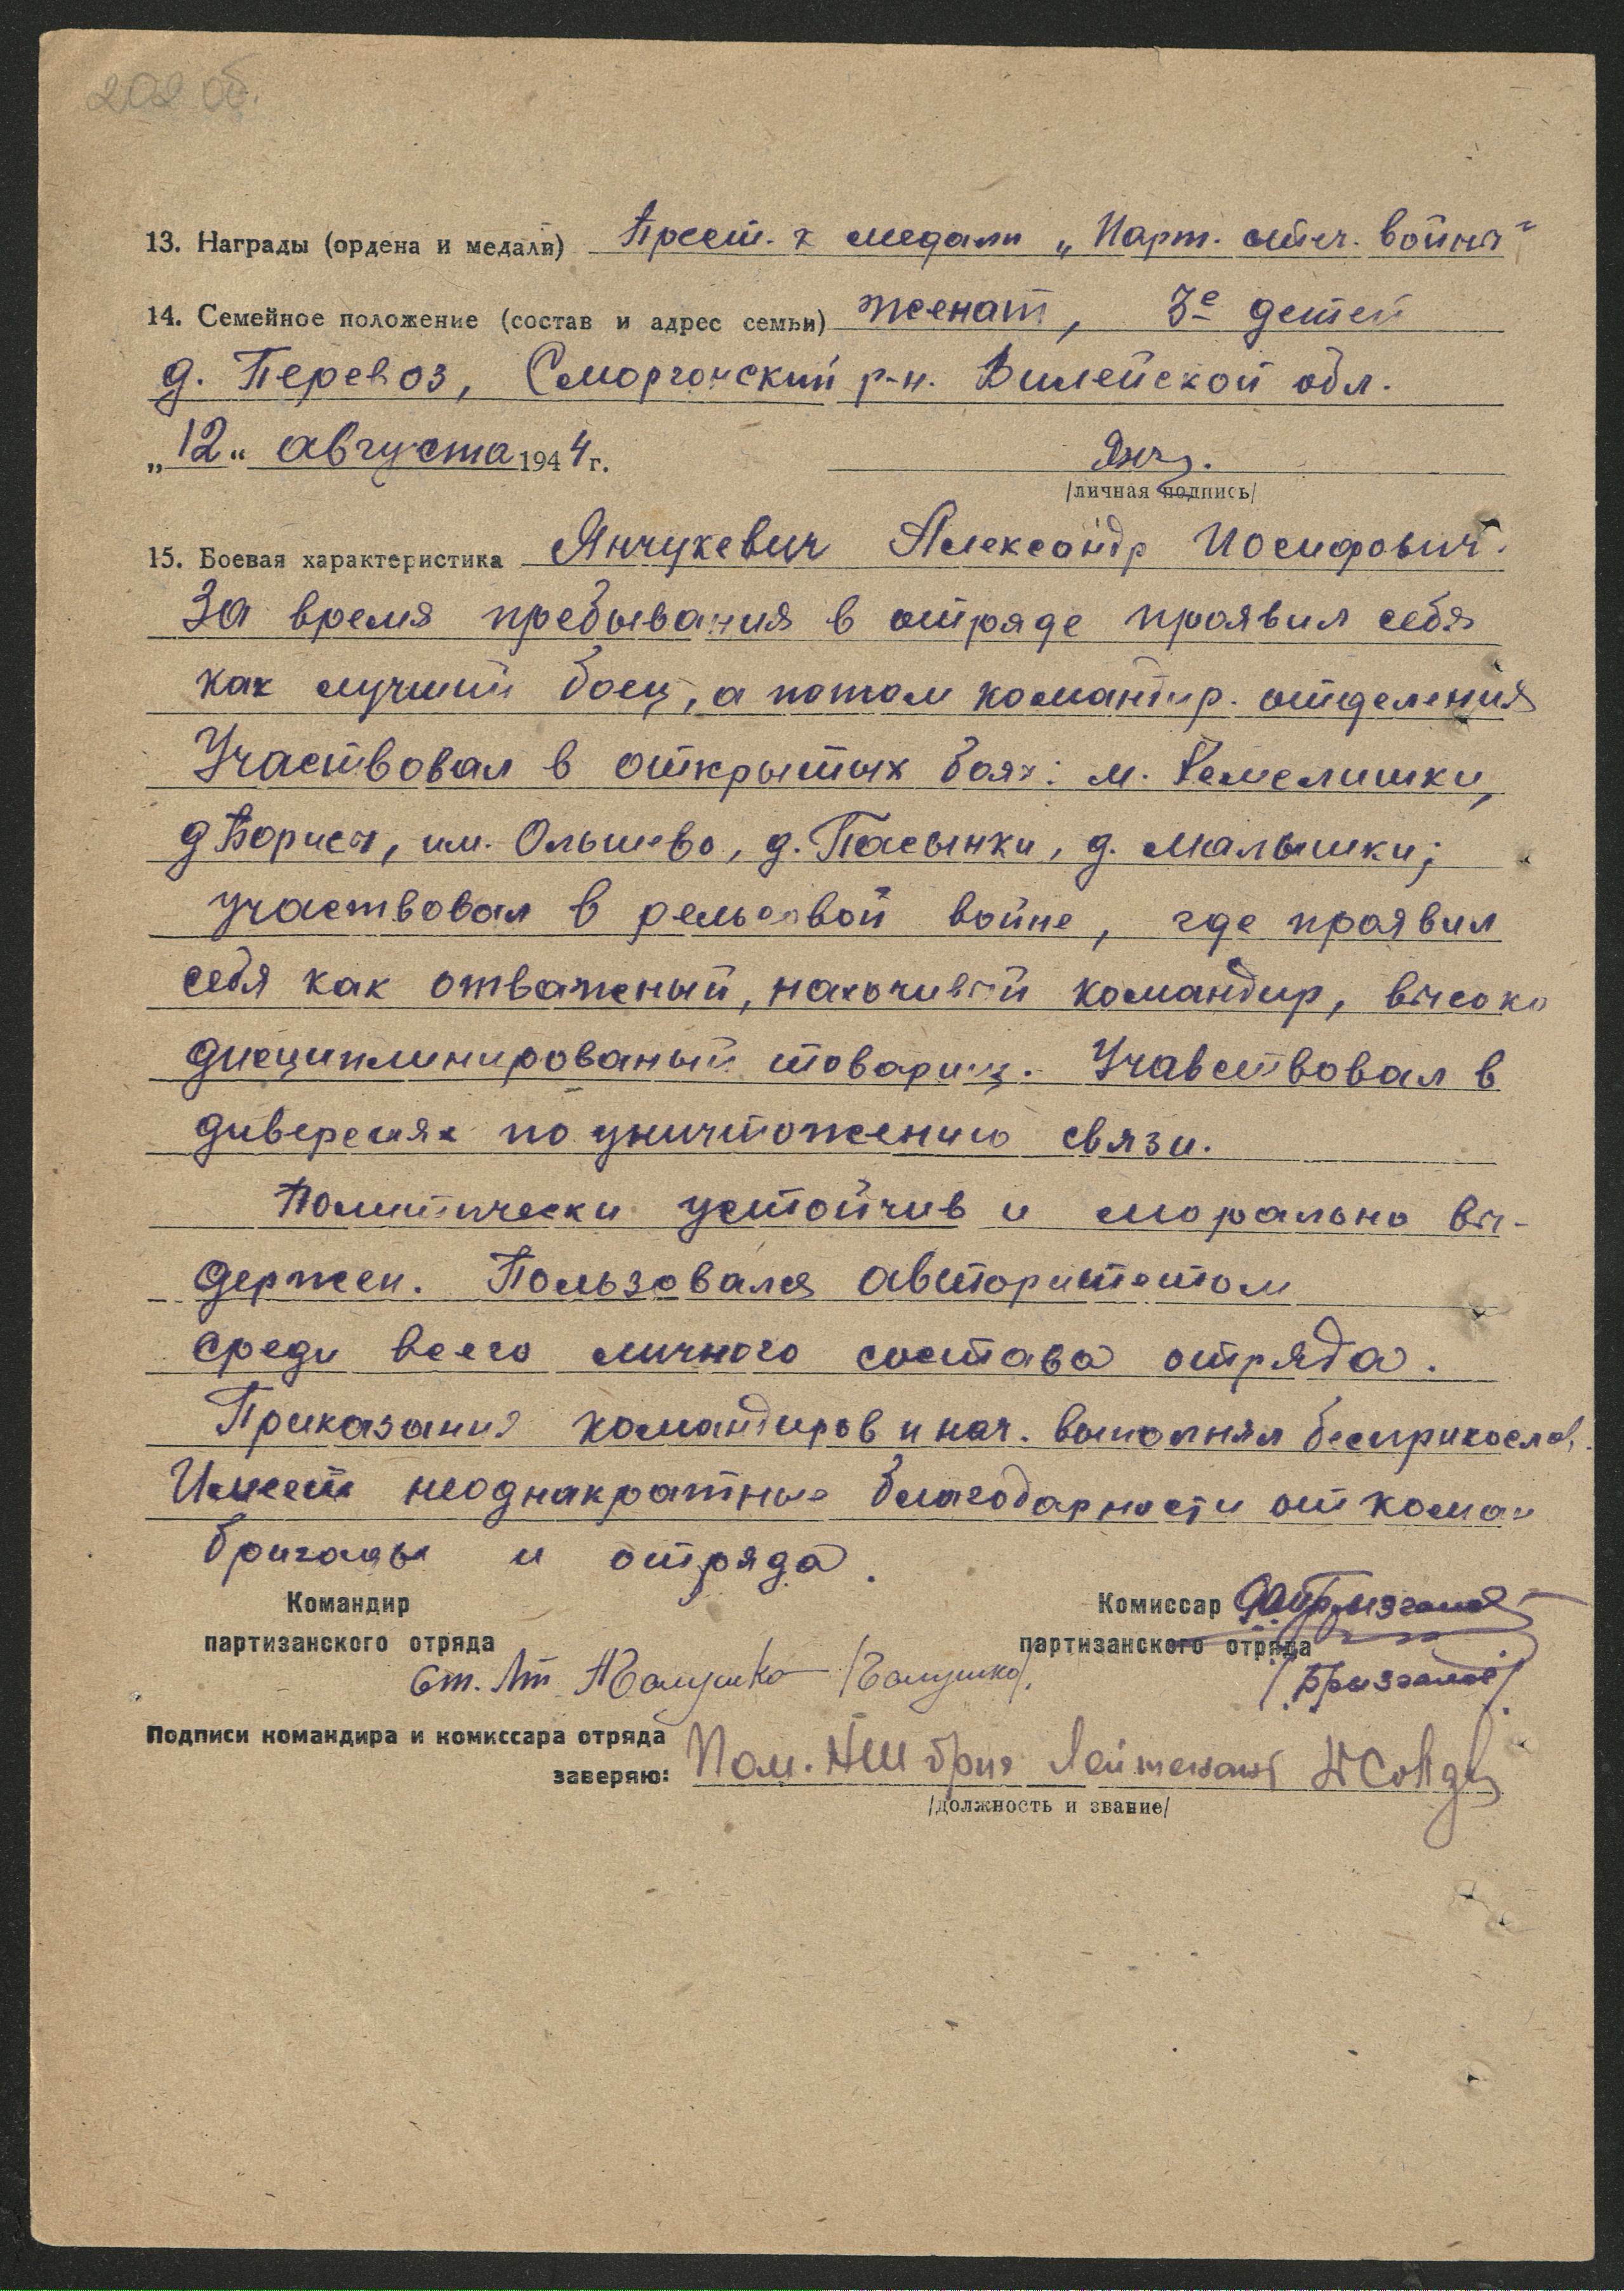 202 об.
13. Награды (ордена и медали) Прест. к медали „Парт. отеч. войны"
14. Семейное положение (состав и адрес семьи) женат, 3е детей
д. Перевоз, Сморгонский р-н. Вилейской обл.
„12" августа 1944 г. Янч.
/личная подпись/
15. Боевая характеристика Янчукевич Александр Иосифович.
За время пребывания в отряде проявил себя
как лучший боец, а потом командир. отделения
Участвовал в открытых боях: м. Кемелишки,
д. им. Ольшево, д. Пасынки, д. Малышки;
участвовал в рельсовой войне, где проявил
себя как отважный, находчивый командир, высоко
дисциплинированый товарищ. Учавствовал в
диверсиях по уничтожению связи.
Политически устойчив и морально вы-
держен. Пользовался авторитетом
среди всего личного состава отряда.
Приказания командиров и нач. выполнял бесприкослов.
Имеет неоднакратные благодарности от коман
бригады и отряда.
Командир
партизанского отряда
Ст. Лт /Балушко/.
Комиссар
партизанского отряда
Подписи командира и комиссара отряда
заверяю: Пом. НШ бриг Лейтенант
/должность и звание/